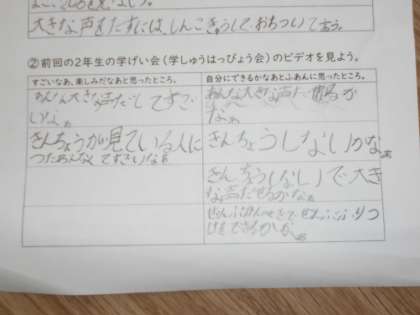 大きな声をだすには、しんこきゅうして、おちついて言う。
②前回の２年生の学げい会（学しゅうはっぴょう会）のビデオを見よう。
すごいなあ、楽しみだなあと思ったところ。
みんな大きな声だしてすご
いなぁ
きんちょうが見ている人に
つたわんなくてすごいなぁ
自分にできるかなあとふあんに思ったところ。
みんな大きな声だせるか
なぁ
きんちょうしないかなぁ
きんちょうしないで大き
な声だせるかなぁ